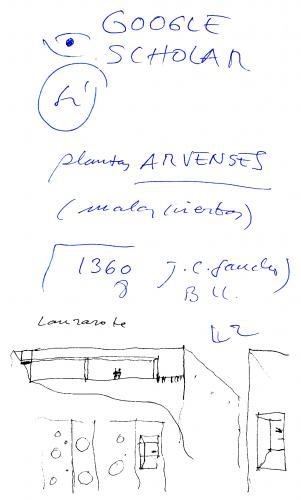 GOOGLE
SCHOLAR
plantas ARVENSES
(malas hierbas)
1360 J.C. Sanchez
Lanzarote